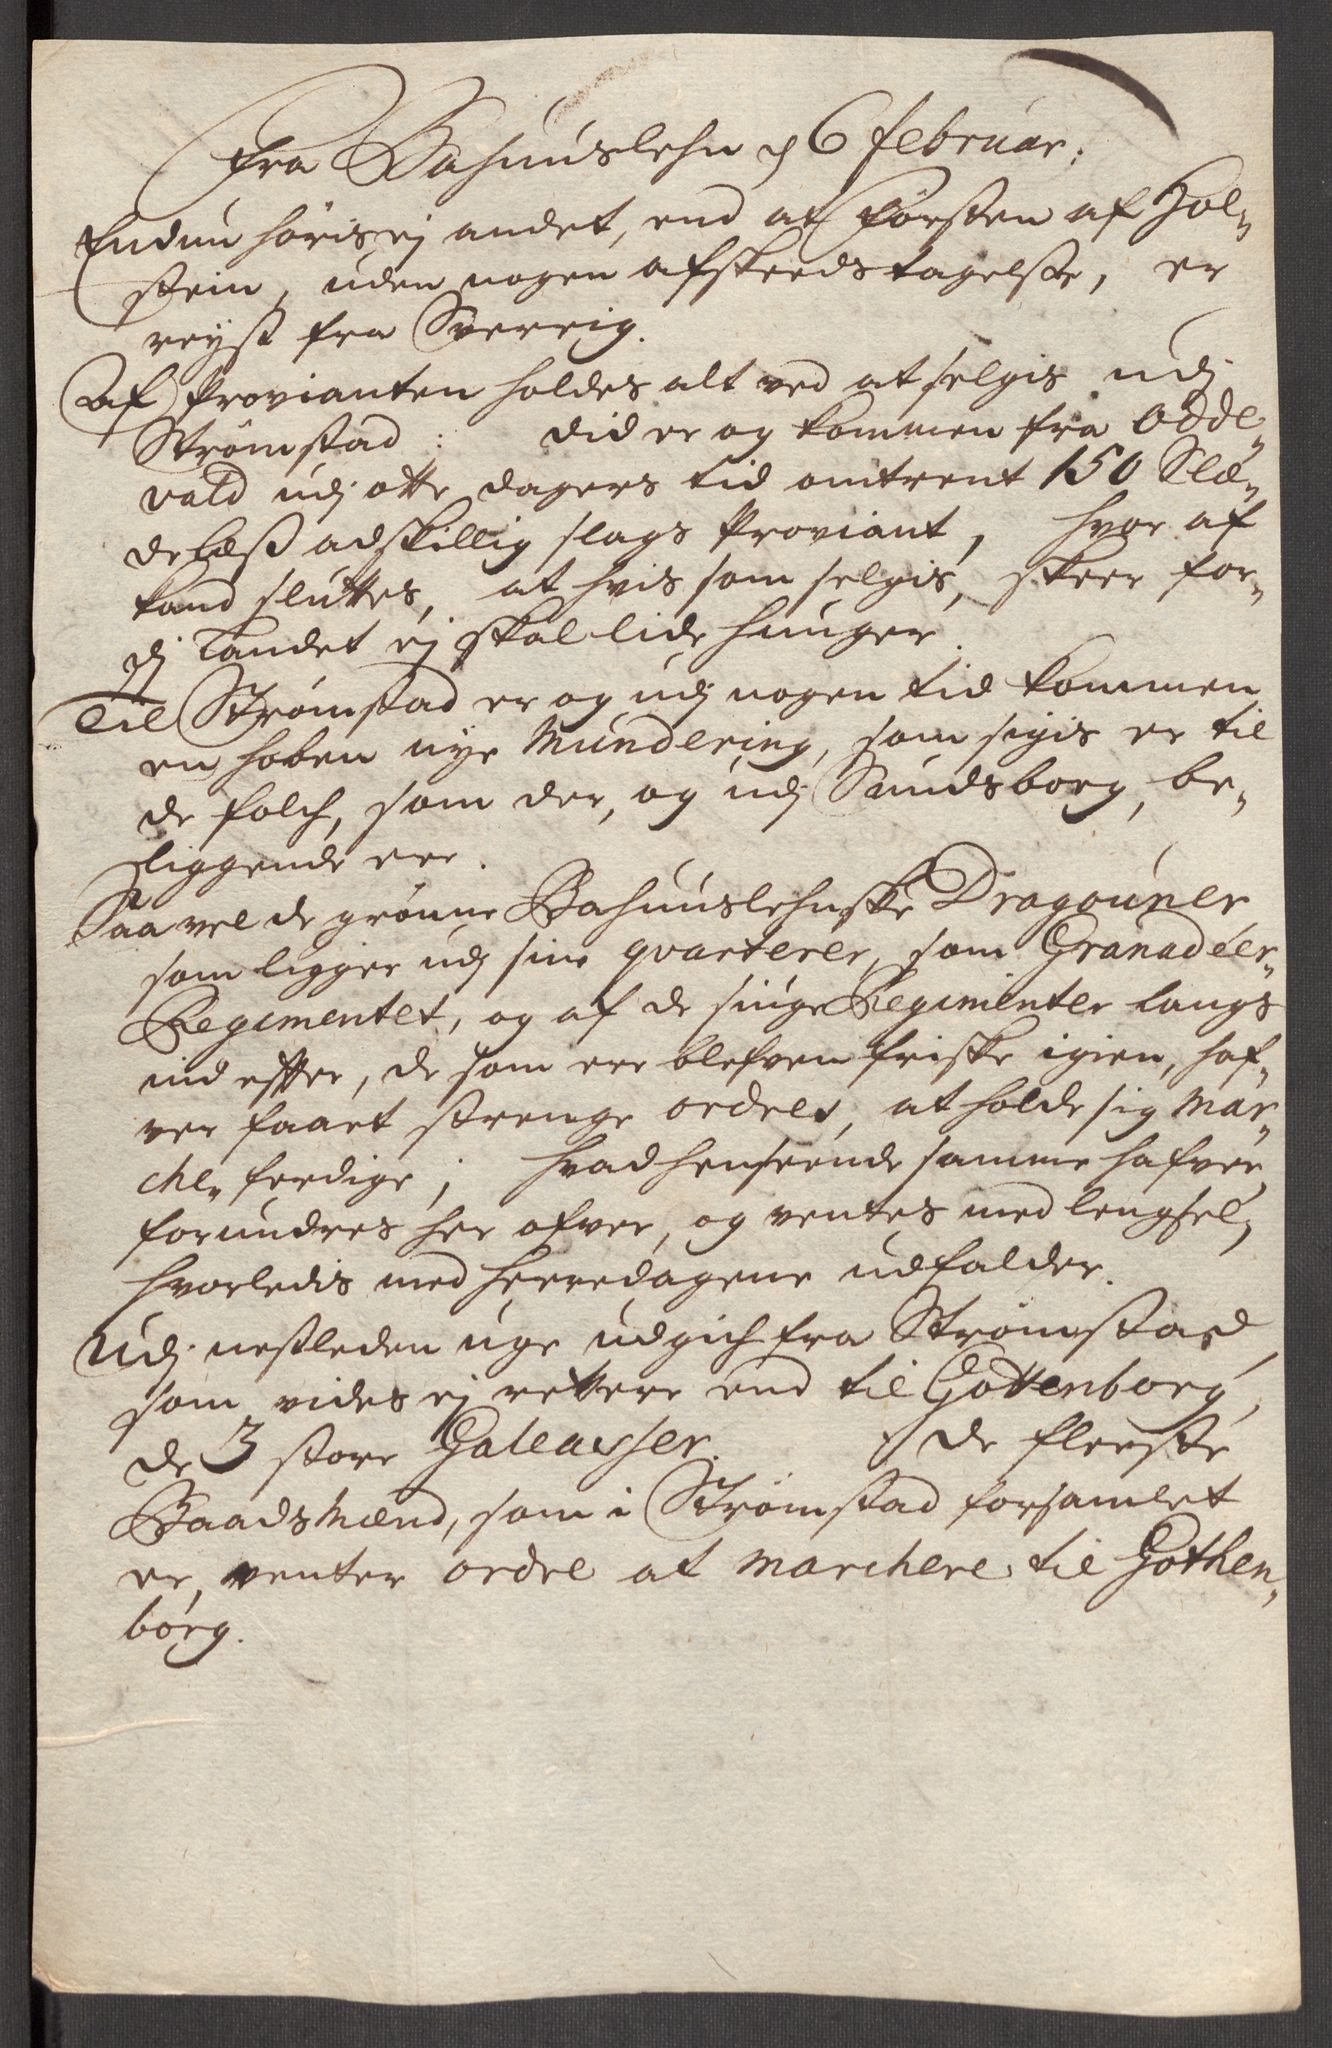 Fra Bahuuslehn d 6 februar:
Endnu høris ej andet, end at Førsten af Hol-
stein, uden nogen afskeeds tagelsse, er
reyst fra Sverrig.
Af Provianten holdes alt ved at selgis udj
Strømstad: did er og kommen fra Odde-
vald udj otte dagers tid omtrent 150 Slæ-
delæss adskillig slags Proviant, hvor af
kand sluttes, at hvis som selgis, skeer for-
dj Landet ej skal lide hunger.
Til Strømstad er og udj nogen tid kommen
en hoben nye Mundering, som sigis er til
de folch, som der, og udj Sundsborg, be-
liggende ere.
Saa vel de grønne Bahuuslehnske Dragouner
som ligger udj sine qvarterer, som Granadeer-
Regimentet, og af de siuge Regimenter langs
ind efter, de som ere blefven friske igien, haf-
ver faaet strenge ordres, at holde sig Mar-
che-ferdige; hvad henseende samme hafver
forundres her ofver, og ventes med lengsel,
hvorledis med herredagene udfalder.
Udj nestleden uge udgich fra Strømstad,
som vides ej rettere end til Gottenborg,
de 3 store Galeasser. de fleeste
Baadsmænd, som i Strømstad forsamlet
er, venter ordre at marchere til Gothen-
borg.